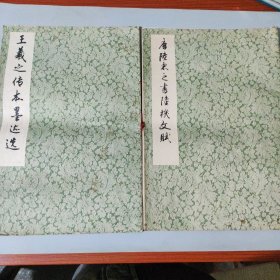 王羲之传本墨迹选
唐陆柬之书陆机文赋